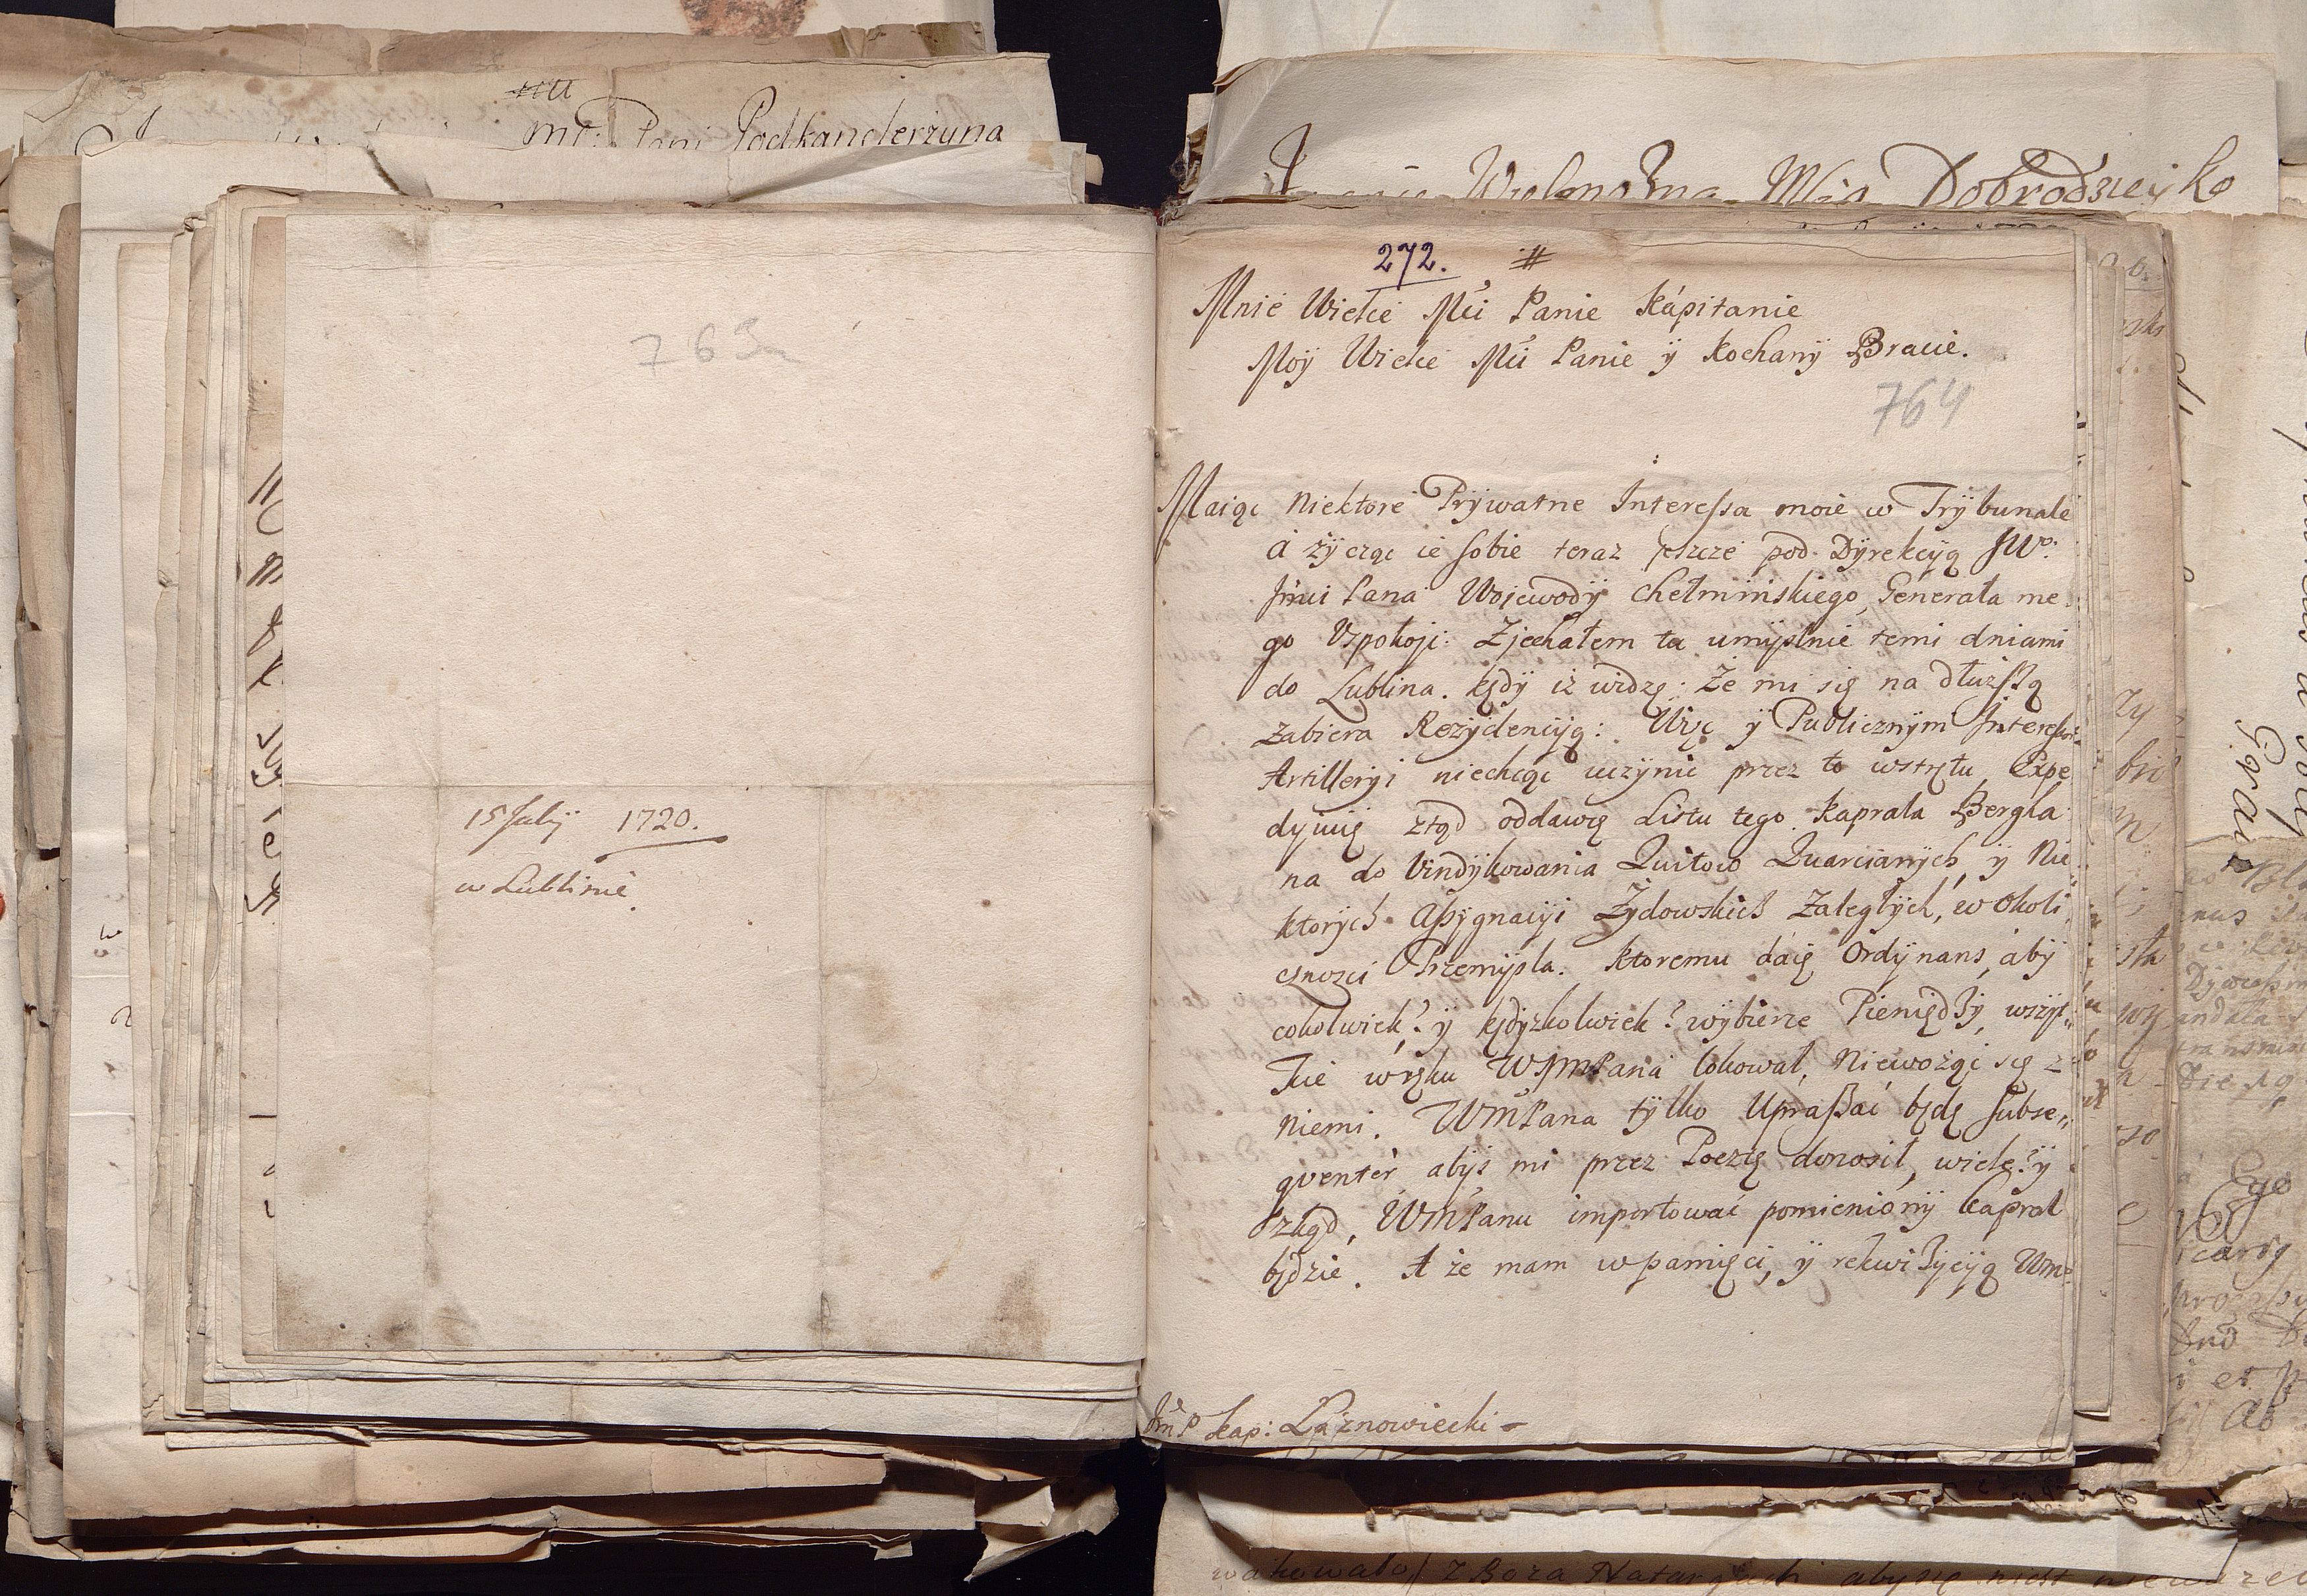 Mć: Pani Podkanclerzyna
Wielmożna Mścia Dobrodzieyko
763a
15 Julij 1720.
w Lublinie.
272. #
Mnie Wielce Mći Panie Kápitanie
Moÿ Wielce Mći Panie ÿ Kochanÿ Bracie.
764
Maiąc Niektore Prÿwatne Interessa moie w Trÿbunale
á żÿcząc ie sobie teraz jeszcze pod Dÿrekcÿą JWo:
Jmći Pana Wojewodÿ Chełmińskiego, Generała me
go Uspokoji: Zjechałem tu umÿslnie temi dniami
do Lublina. Kędÿ iż widzę: Że mi się na dłuższą
zabiera Rezÿdencÿą: Więc ÿ Publicznÿm Interessom
Artillerÿi niechcąc uczÿnic przez to wstrętu, Expe
dyjuię ztąd oddawcę Listu tego Kaprala Bergla
na do Vindÿkowania Quitow Quarcianÿch, ÿ Nie
ktorÿch Assÿgnacÿi Żÿdowskich Zaległÿch, w Okoli
cznosci Przemÿsla. Ktoremu dáię Ordÿnans, abÿ
cokolwiek? ÿ kjdÿzkolwiek? wÿbierze Pieniędzÿ, wszÿt
kie w ręku WJmPana lokował, Niewożąc się z
niemi. WMPana tÿlko Upraszać będę subse„
qventer abÿś mi przez Pocztę donosił, wiele? ÿ
zkąd, WMPanu importować pomienionÿ Kapral
będzie. A że mam w pamięci, ÿ rekwizÿcÿą Wm
JmP Kap: Łaznowiecki